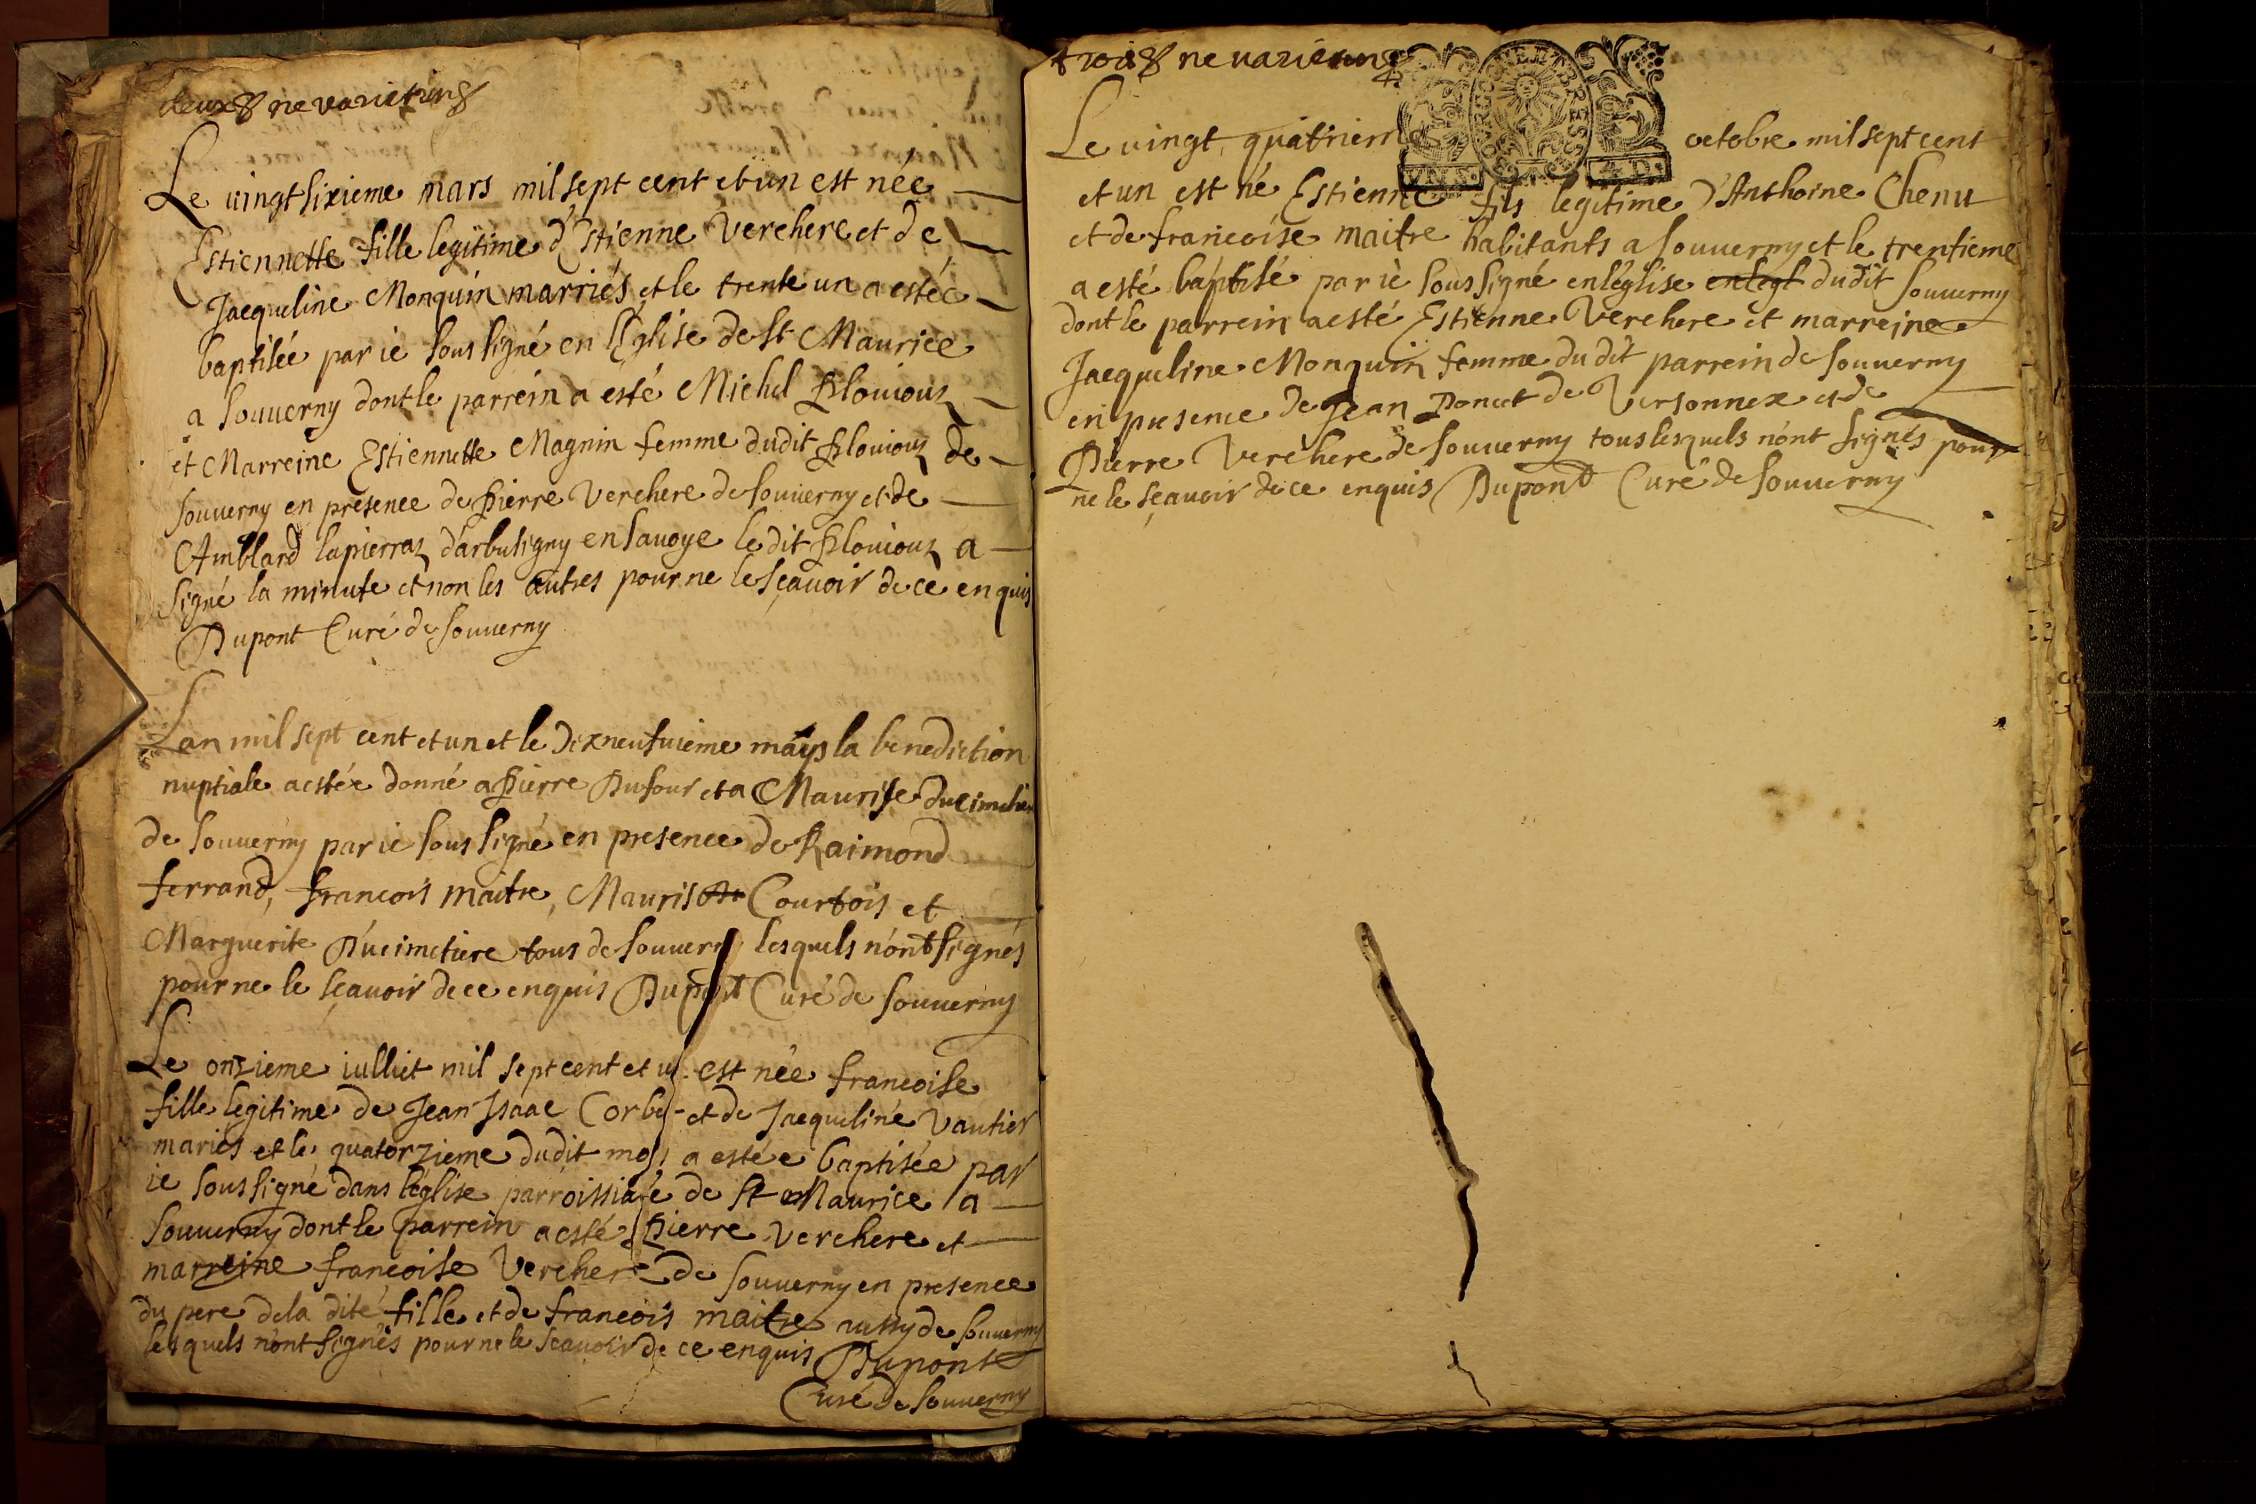 deux ne varietur
Le vingt sixieme mars mil sept cent et un est née
Estiennette fille legitime d'Estienne Verchere et de
Jacqueline Monquin marriés et le trente un a estée
baptisée par ie sous signé en l'Eglise de st Maurice
a Souverny dont le parrein a esté Michel Plouiouz
et Marreine Estiennette Magnin femme dudit Plouiouz de
Souverny en presence de Pierre Verchere de Souverny et de
Amblard lapierraz d'arbusigny en Savoye le dit Plouiouz a
signé la minute et non les autres pour ne le sçavoir de ce enquis
Dupont Curé de Souverny
Lan mil sept cent et un et le dixneufuieme mays la benediction
nuptiale a estée donné a Pierre Dufour et a Maurise Ducimetiere
de Souverny par ie sous signé en presence de Raimond
ferrand, francois maitre, Mauris Courtois et
Marguerite Ducimetiere tous de Souverny lesquels n'ont signés
pour ne le sçavoir de ce enquis Dupont Curé de Souverny
Le onzieme iulliet mil sept cent et un est née francoise
fille legitime de Jean Isaac Corbe et de Jacqueline Vautier
mariés et le quatorzieme dudit mois a estée baptisée par
ie sous signé dans l'eglise parroissiale de St Maurice a
Souverny dont le parrein a esté Pierre Verchere et
marreine francoise Verchere de Souverny en presence
du pere de la dite fille et de francois maitre de Souverny
lesquels n'ont signés pour ne le sçavoir de ce enquis Dupont
Curé de Souverny
trois ne varietur
Le vingt quatriem octobre mil sept cent
et un est né Estienne fils legitime d'Anthoine Chenu
et de francoise maitre habitants a Souverny et le trentieme
a esté baptisé par ie sous signé en l'église enlegl dudit Souverny
dont le parrein a esté Estienne Verchere et marreine
Jacqueline Monquin femme du dit parrein de Souverny
en presence de Jean Poncet de Versonnex et de
Pierre Verchere de Souverny tous lesquels n'ont signés pour
ne le sçavoir de ce enquis Dupont Curé de Souverny